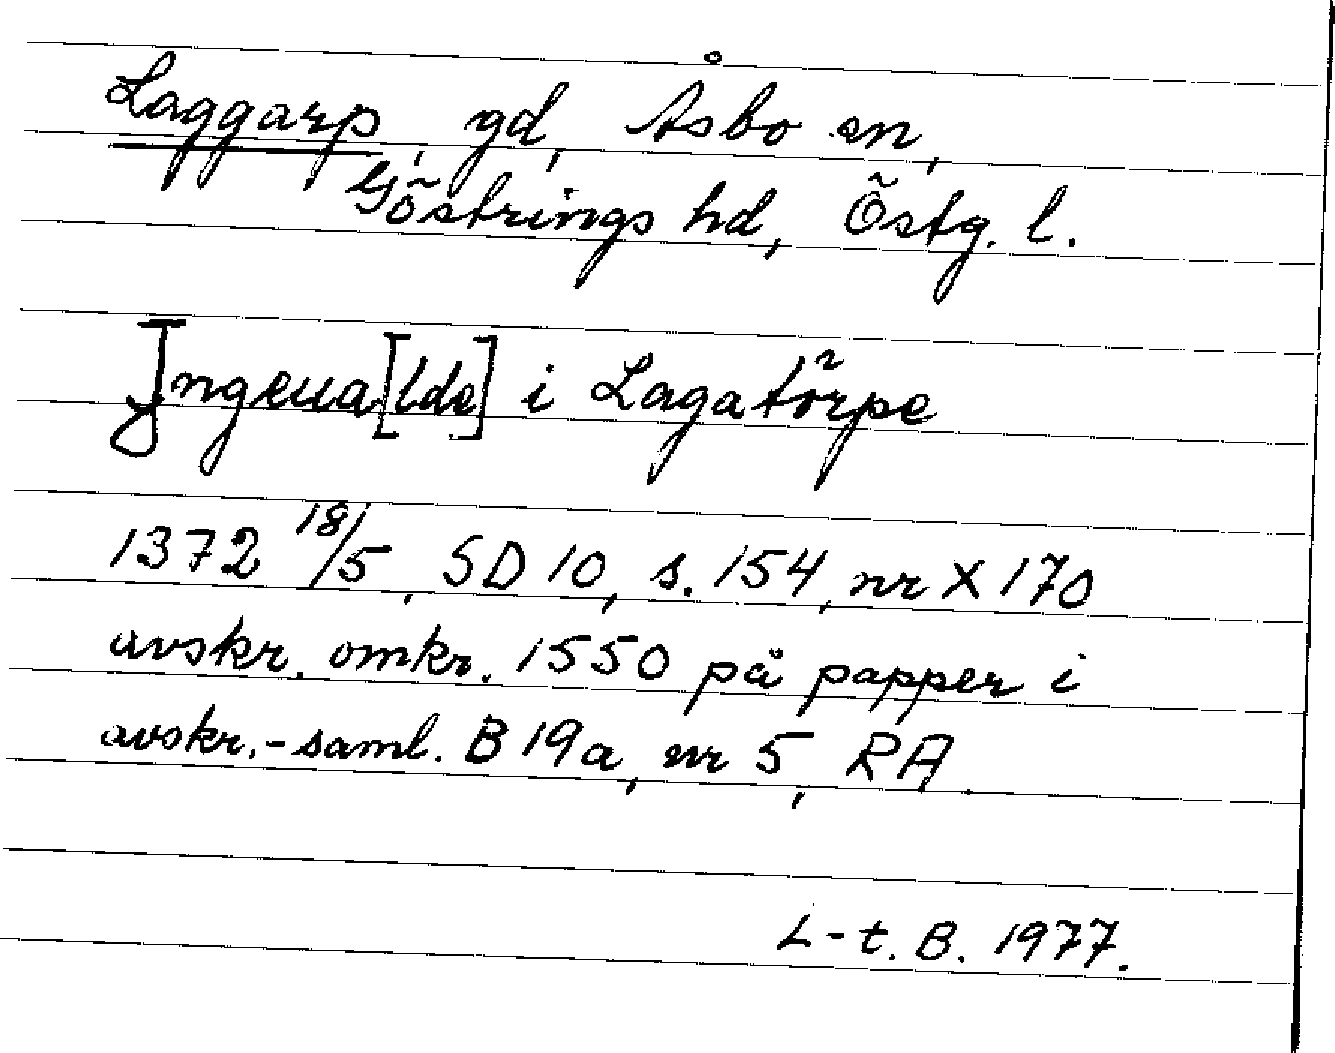 Laggarp, gd, Åsbo sn,
Göstrings hd, Östg. l.
Jngeua[lde] i Lagatörpe
1372 18/5, SD 10, s. 154, nr X 170
avskr. omkr. 1550 på papper i
avskr.-saml. B 19a, nr 5, RA
L-t. B. 1977.